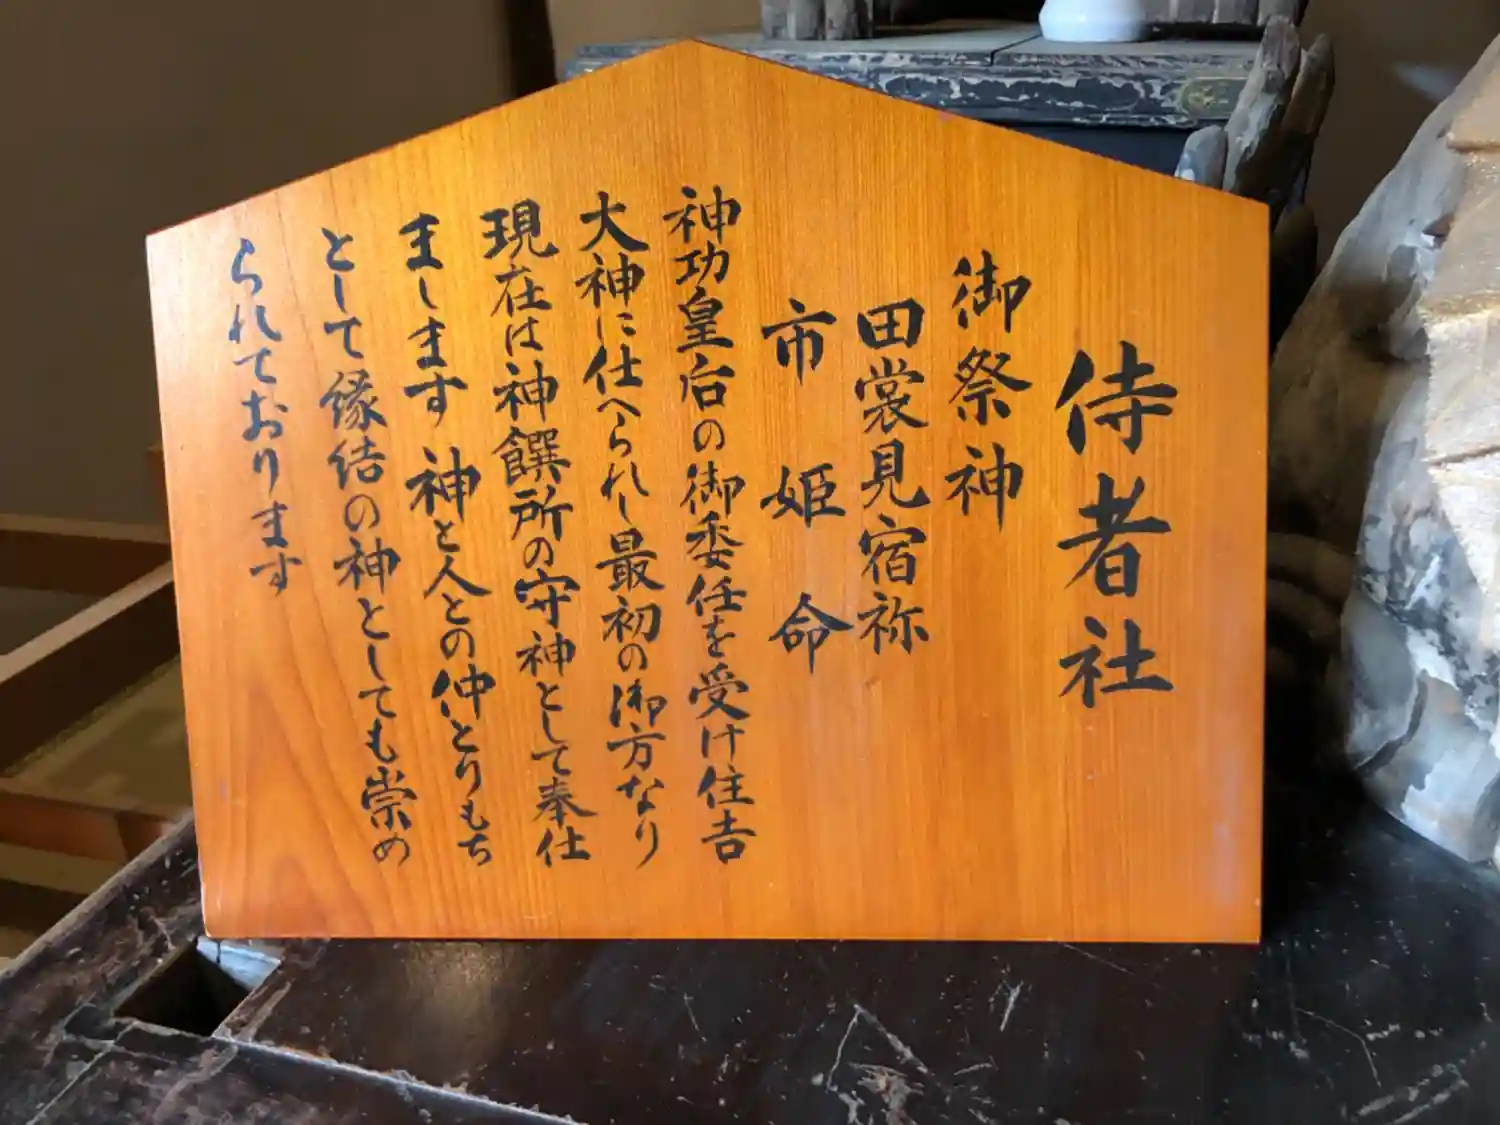 侍者社
御祭神
田裳見宿祢
市姫命
神功皇后の御委任を受け住吉
大神に仕へられし最初の御方なり
現在は神饌所の守神として奉仕
まします 神と人との仲とりもち
として縁結の神としても崇め
られております